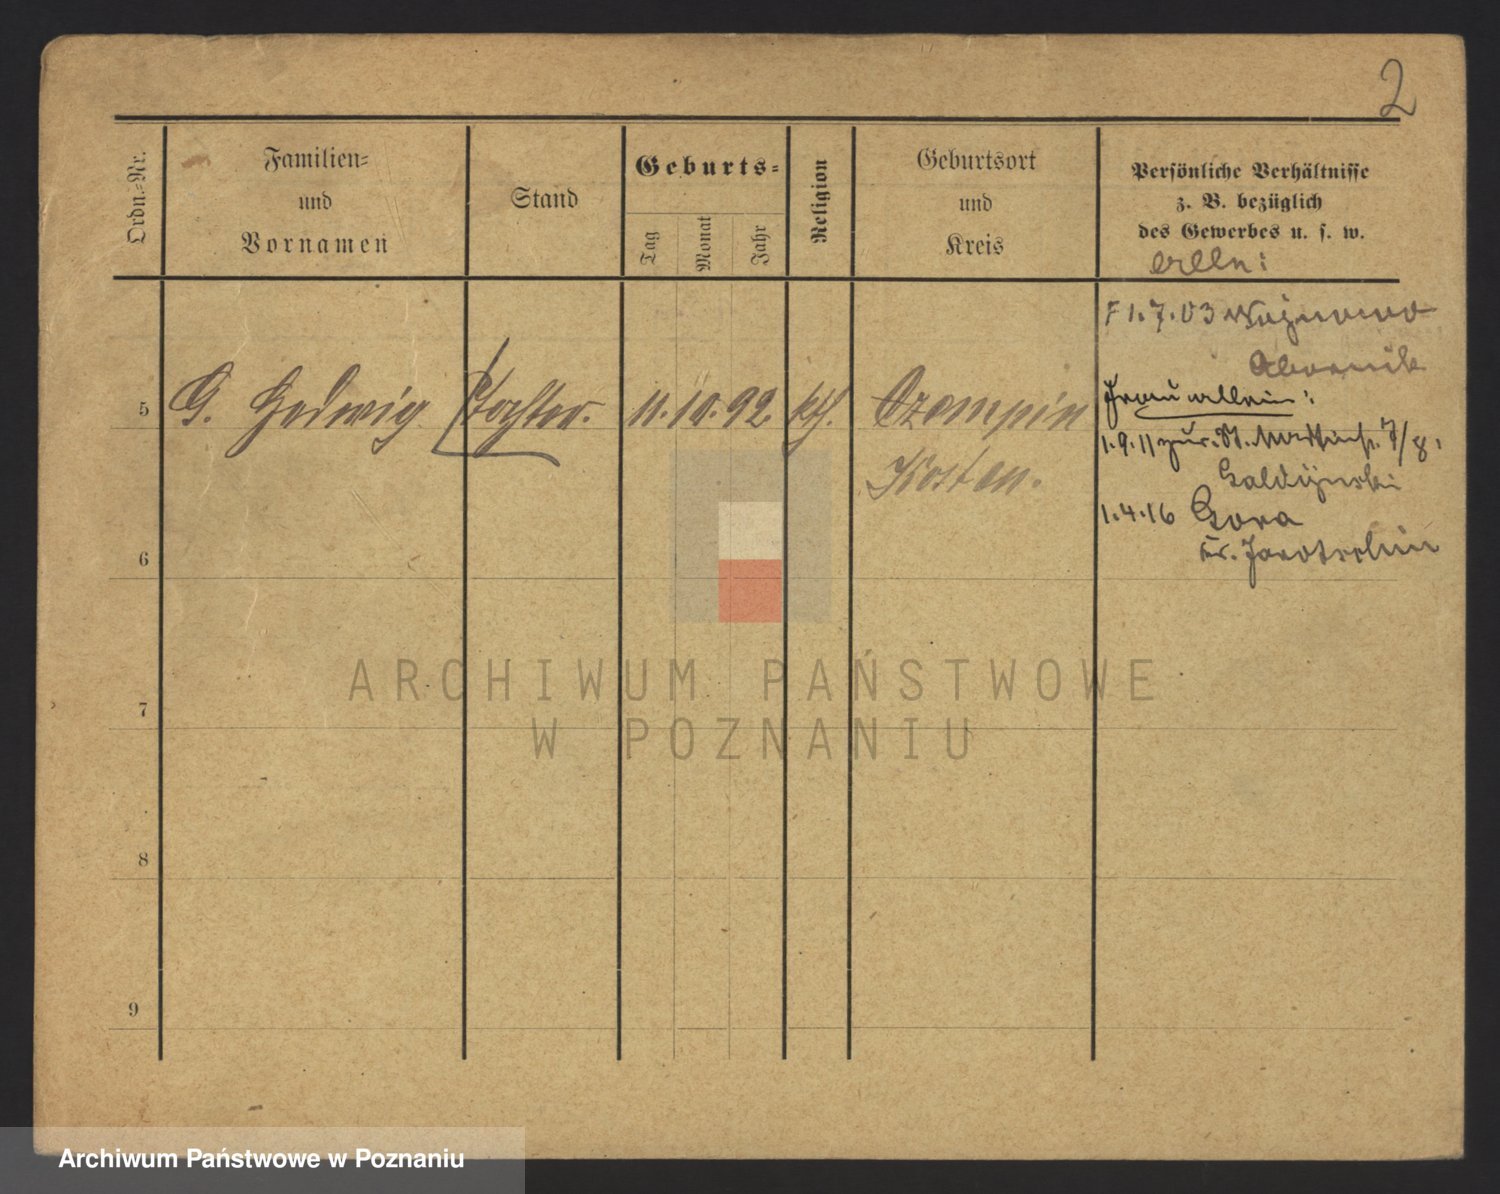 2
Ordn.-Nr.
Familien-
und
Vornamen
Stand
Geburts-
Tag
Monat
Jahr
Religion
Geburtsort
und
Kreis
Persönliche Verhältnisse
z. B. bezüglich
des Gewerbes u. s. w.
1.7.03
5 G. Hedwig Tochter. 11. 10. 92. kth. Czempin
Kosten.
Frau allein:
1.9.11 zur. St. Martinstr. 7/8.
1.4.16 Gora
Kr. Jarotschin
6
7
8
9
ARCHIWUM PAŃSTWOWE
W POZNANIU
Archiwum Państwowe w Poznaniu